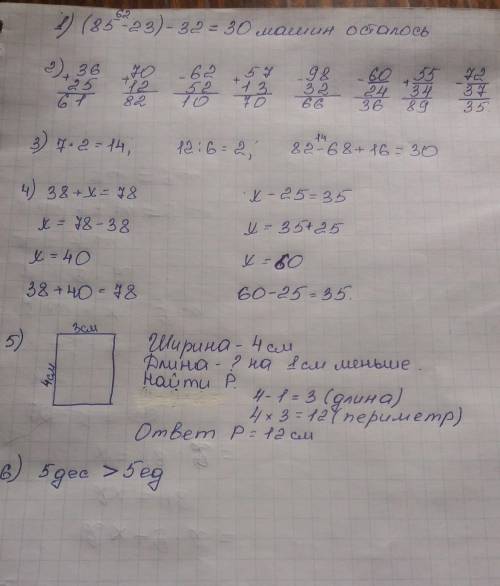 62
1) (85-23)-32=30 машин осталось
2) +36 +70 -62 +57 -98 -60 +55 -72
25 12 52 13 32 24 34 37
61 82 10 70 66 36 89 35
14
3) 7·2=14; 12:6=2; 82-68+16=30
4) 38+x=78 x-25=35
x=78-38 x=35+25
x=40 x=60
38+40=78 60-25=35.
5) 3см Ширина-4см
4см Длина-? на 1см меньше.
Найти P.
4-1=3 (длина)
4×3=12 (периметр)
Ответ P=12см
6) 5дес >5ед